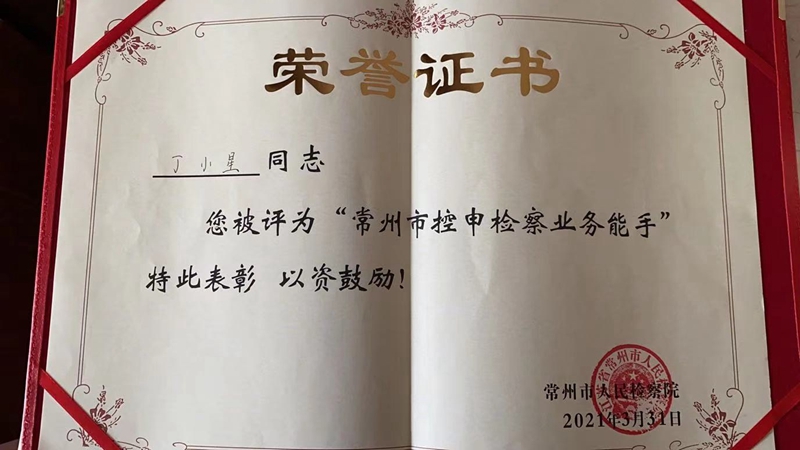 荣誉证书
丁小星 同志
您被评为“常州市控申检察业务能手”
特此表彰 以资鼓励！
常州市人民检察院
2021年3月31日